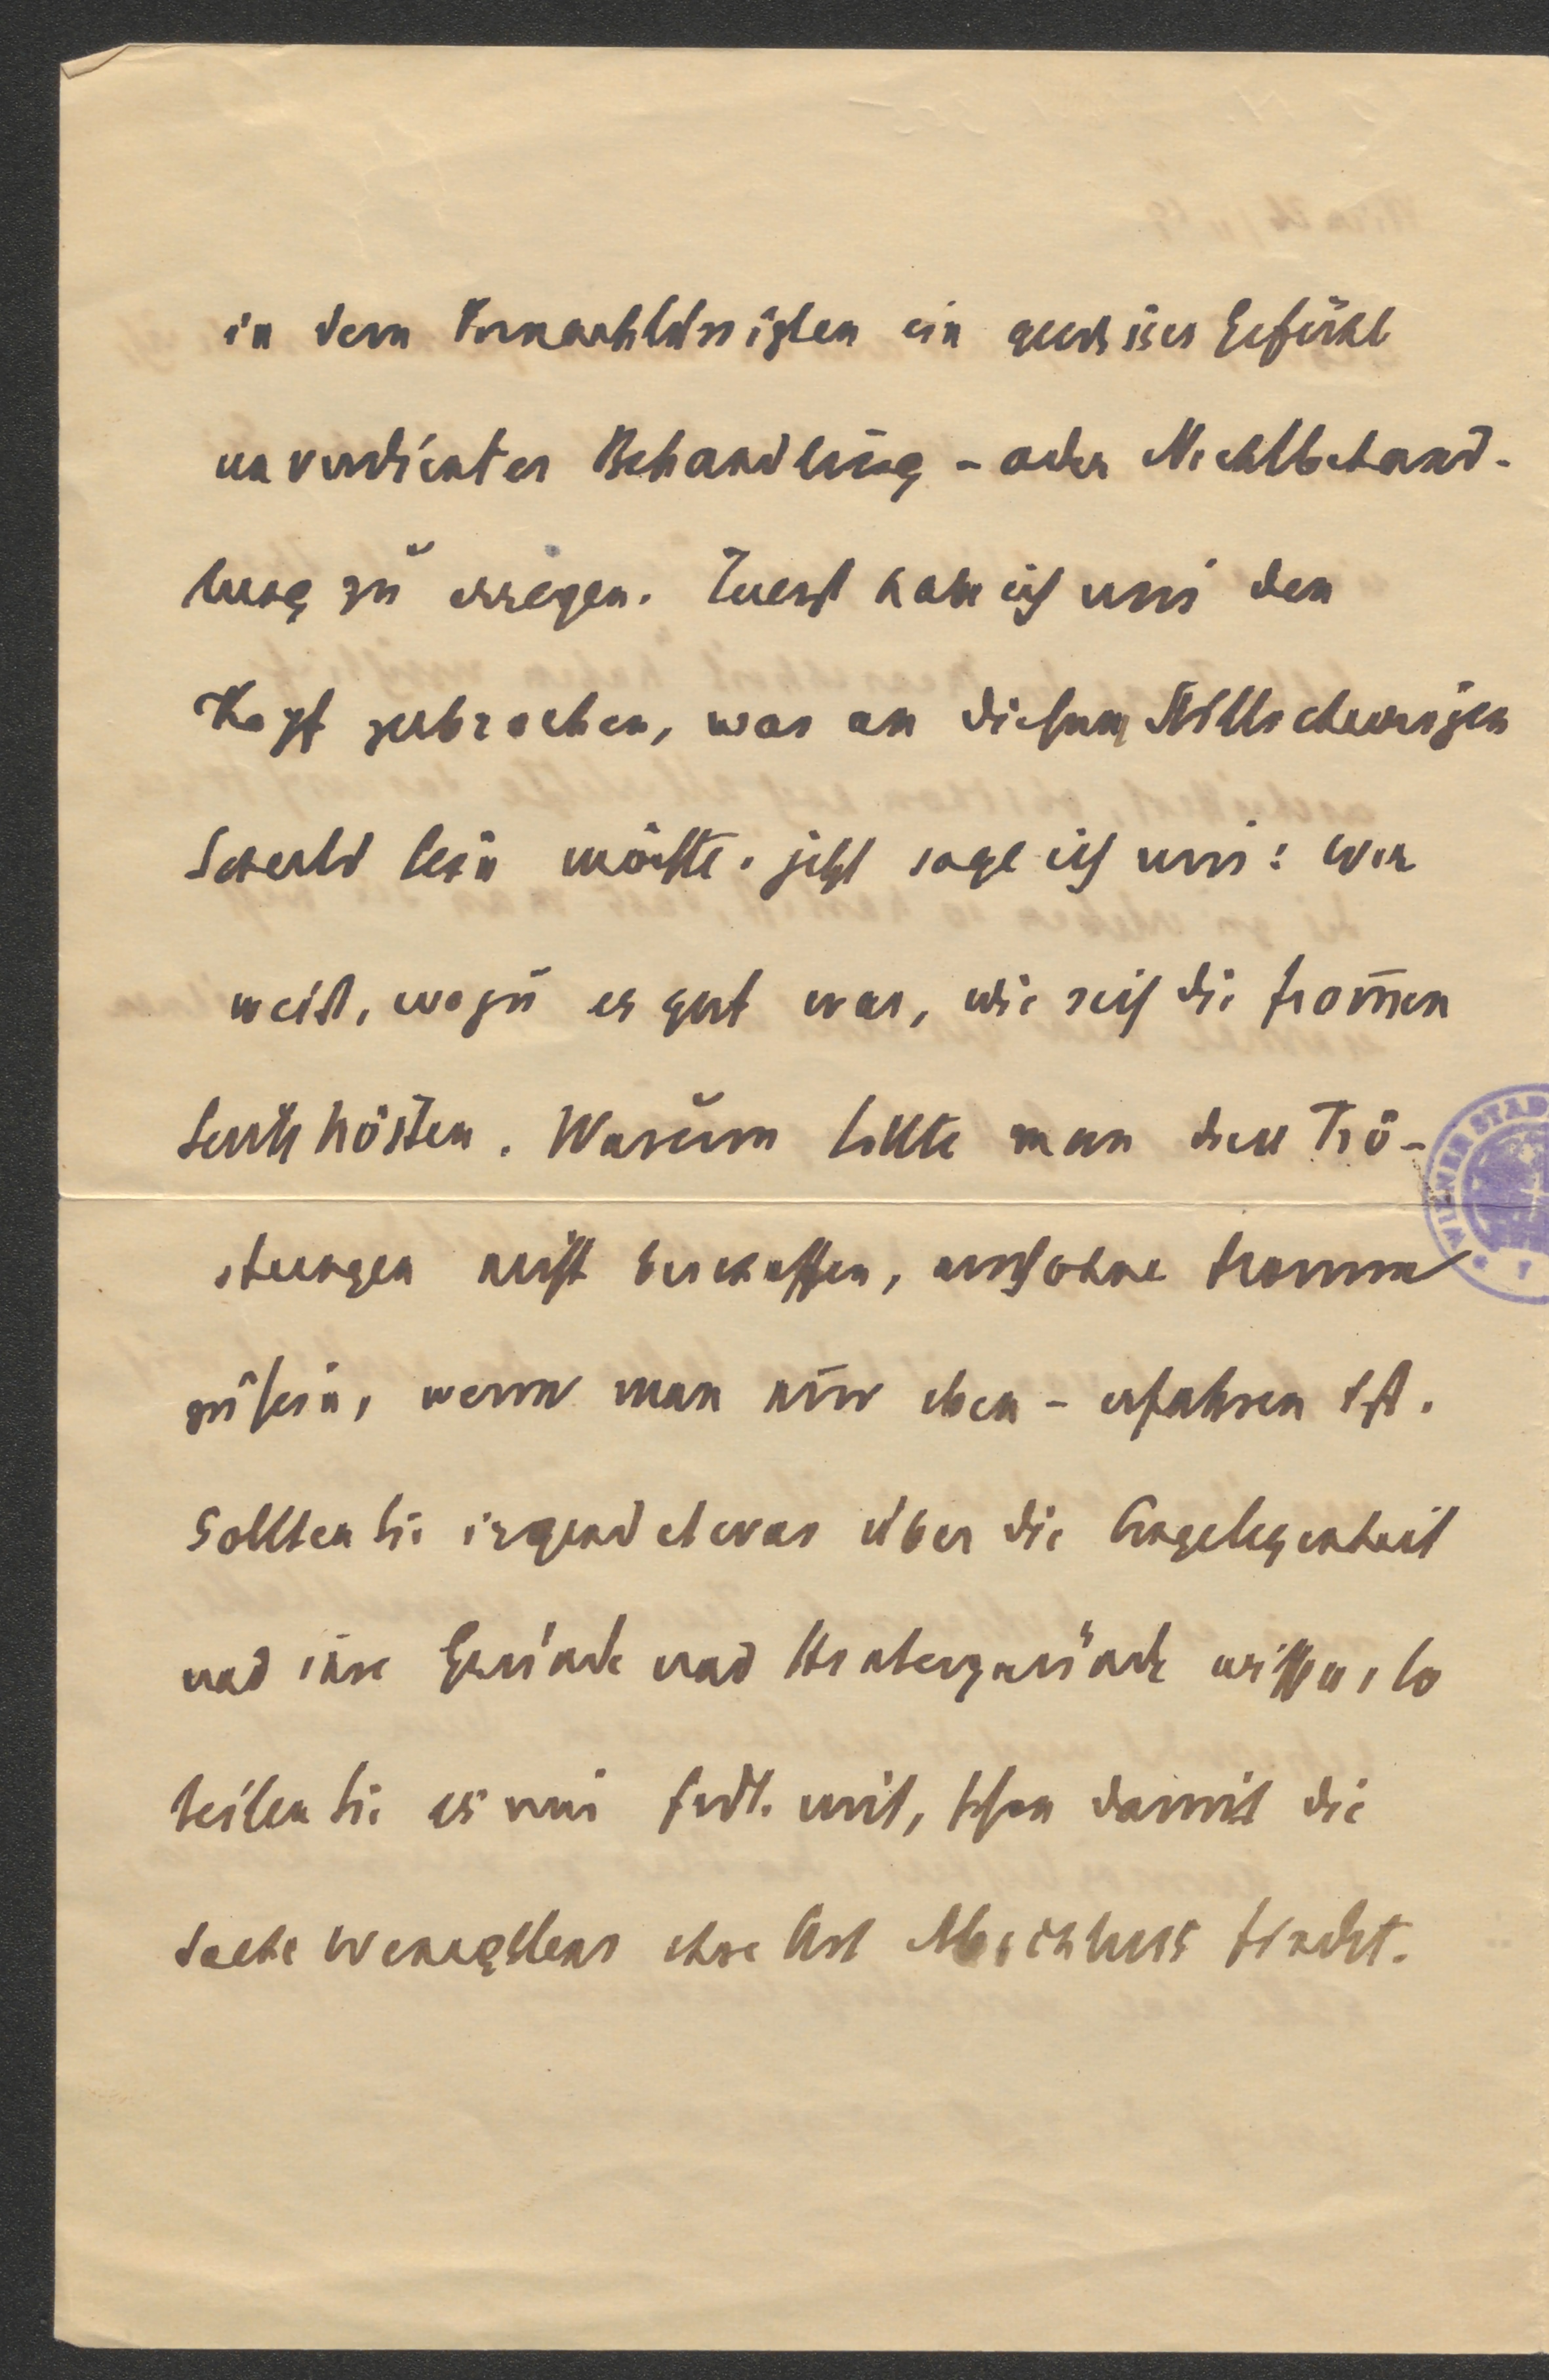 in dem Vernachlässigten ein gewisses Gefühl
unverdienter Behandlung - oder Nichtbehand-
lung zu erregen. Zuerst habe ich mir den
Kopf zerbrochen, was an diesem Stillschweigen
Schuld sein möchte. jetzt sage ich mir: Wer
weiß, wozu es gut war, wie sich die from̅en
Leute trösten. Warum sollte man diese Trö-
stungen nicht verschaffen, auch ohne fromm
zu sein, wenn man nur eben - erfahren ist.
Sollten Sie irgend etwas über die Angelegenheit
und ihre Gründe und Hintergründe wissen, so
teilen Sie es mir frdl. mit, schon damit die
Sache wenigstens ihre Art Abschluss findet.
WIENER STAD